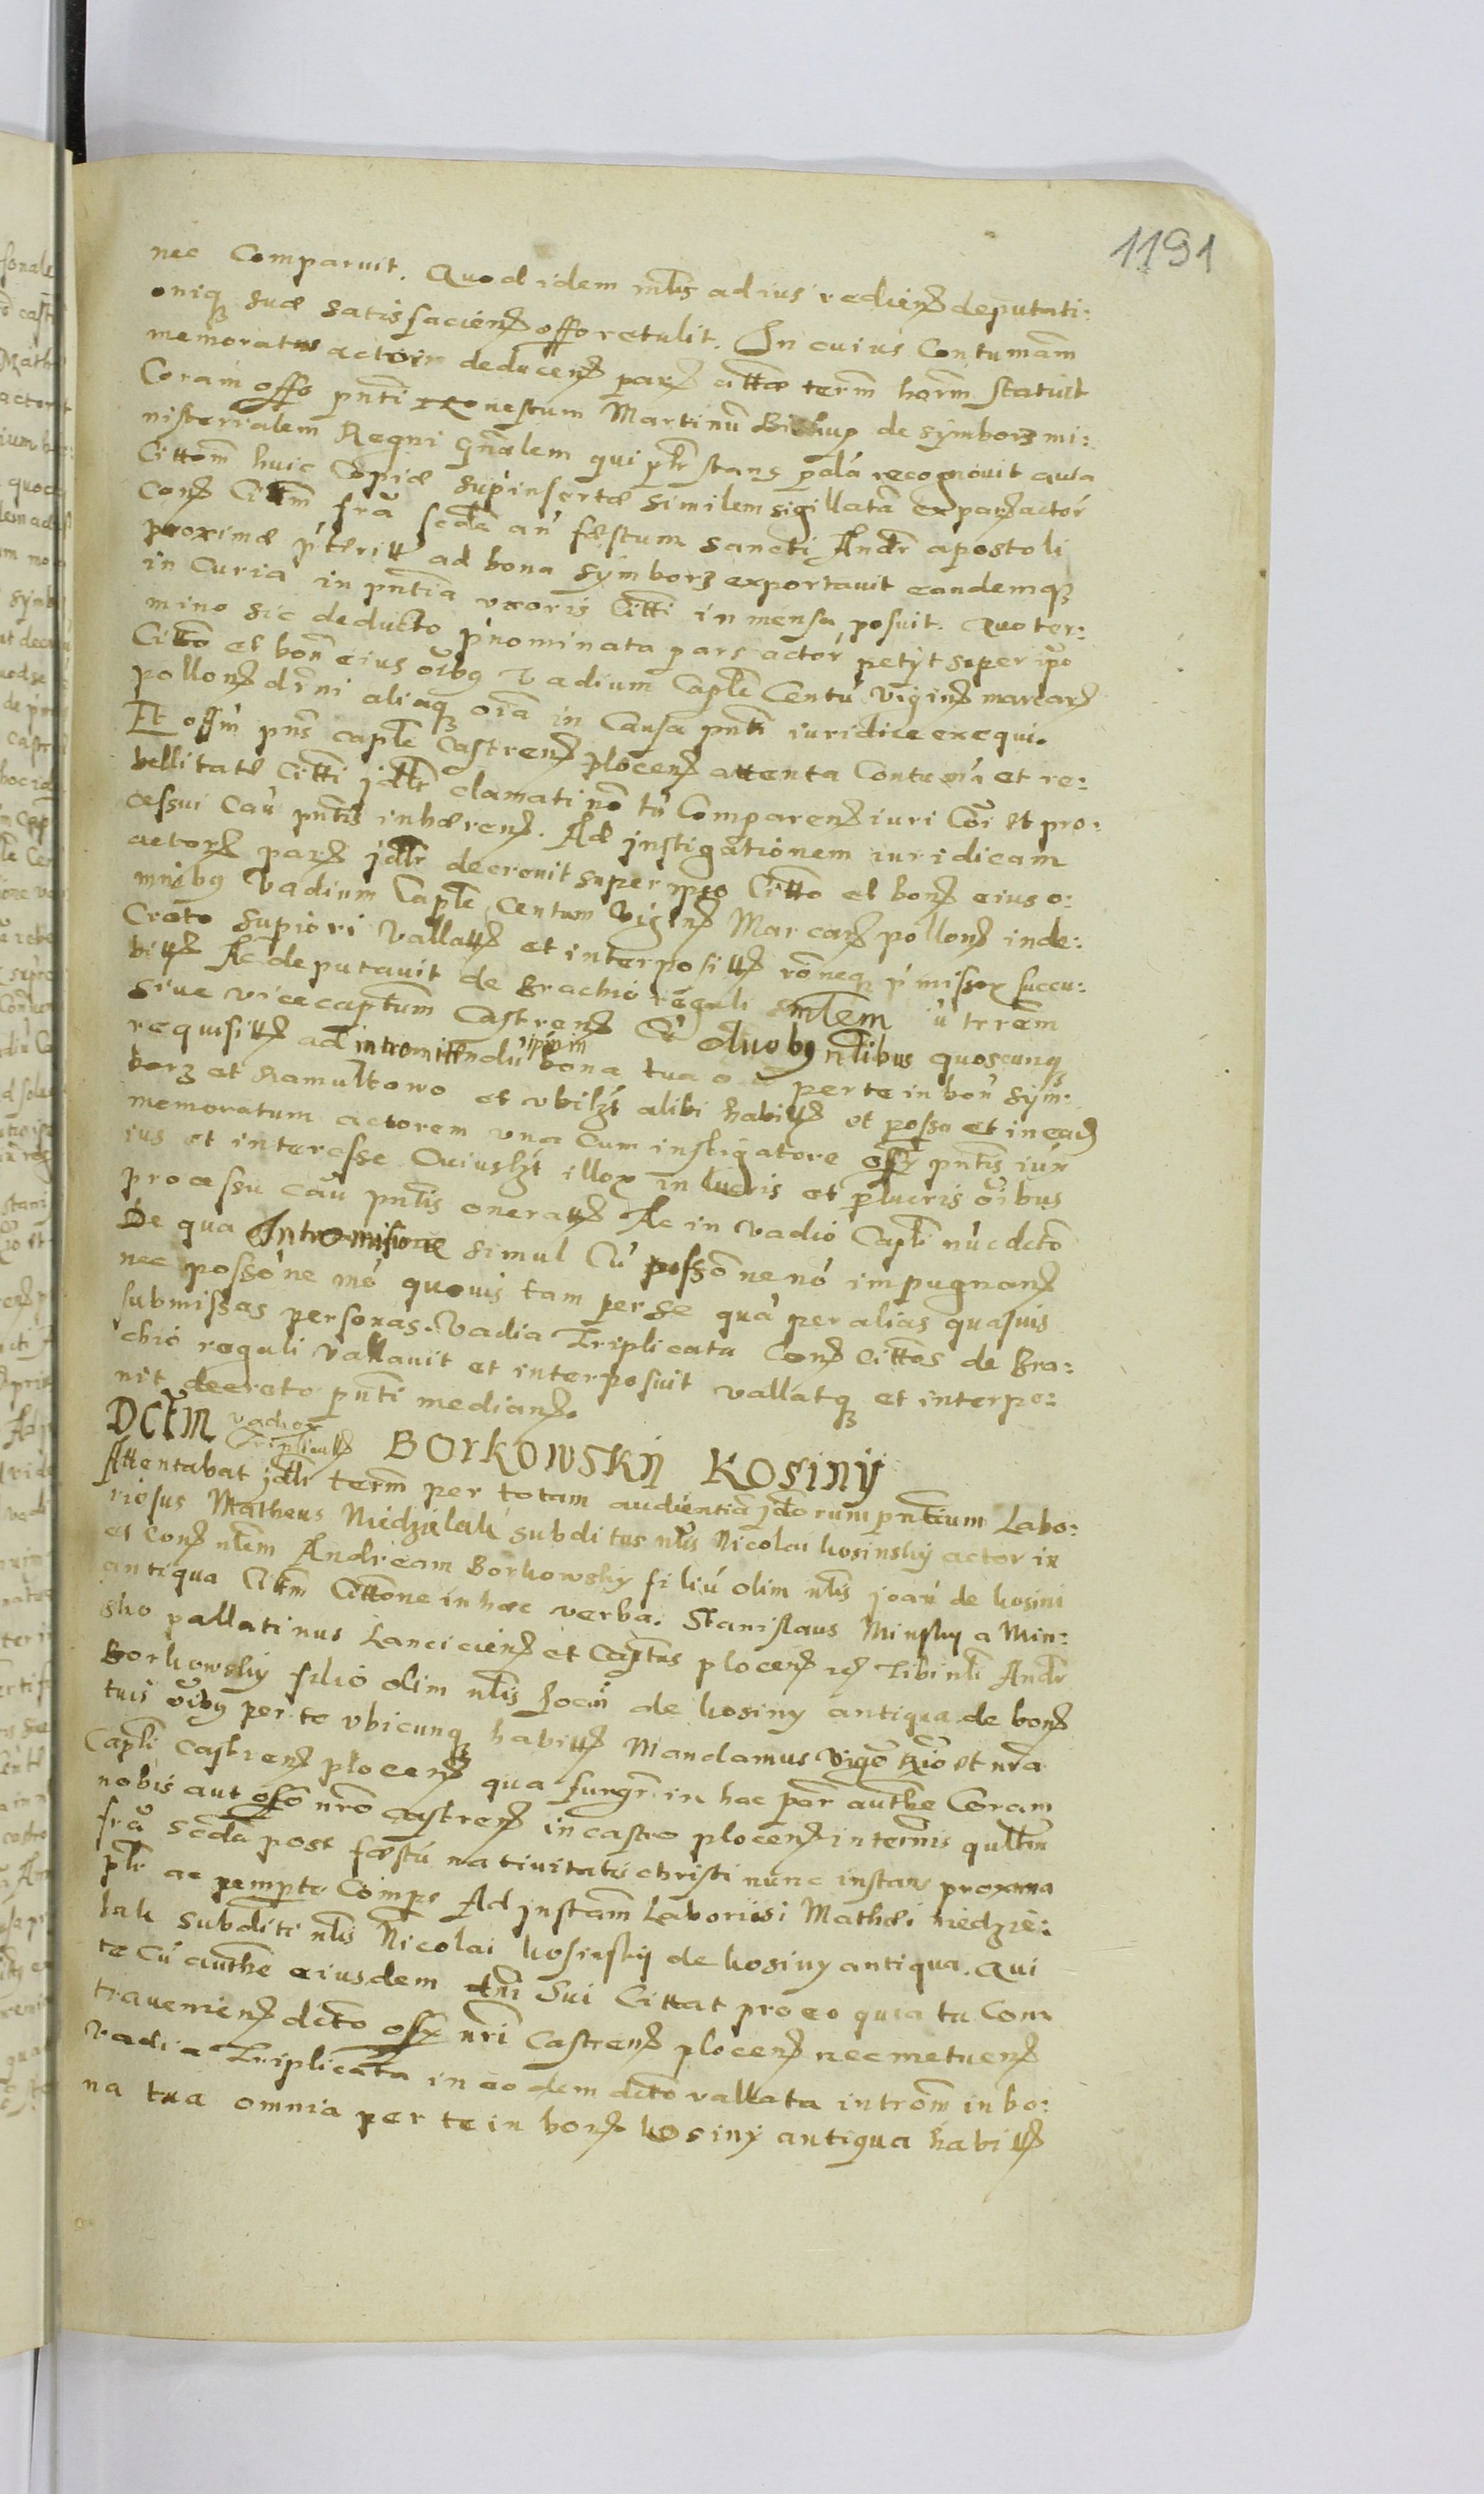 1191
nec Comparuit. Quod idem mlis ad ius rediens deputati:
oniq suæ satisfaciens offo retulit. In cuius Contumam
memoratus actor deducens pars citta term horm statuit
Coram offo pnti honestum Martinu de Symborz mi:
nisterialem Regni gnalem qui pntr stans pala recognouit quia
Cittom huic Copiæ supinsertæ similem sigillata ex pars actor
cons Cittm fra scda an fæstum sancti Andr apostoli
proximæ pterit ad bona Symborz exportauit eandemq
in Curia in pntia vxoris Citti in mensa posuit. Quo ter:
mino sic deducto pnominata pars actor petyt super ipo
Citto et bon eius oibg Vadium Caplé Centu Vigins marcars
pollons drni aliaq oia in Causa pnti iuridice exequi.
Et offm pns caplé Castrens plocens attenta Contuma et re:
bellitate Citti jdlr clamati no tn Comparens iuri Coi et pro:
cessui Cau pntis inhærens. Ad instigationem iuridicam
actors pars jdlr decreuit super ipso Citto et bons eius o:
mnibg Vadium Caplé Centum Vigins Marcars pollons in de:
creto supiori Vallatts et interpositts roneq pmissor succu:
bitts Ac deputauit de Brachio regali mlem u trrem
siue vicecaptum Castrens Cu duobg nlibus quoscunq
requisitts ad intromittendu ipm in bona tua oa per te in bon Sym:
borz et Ramultowo et vbilzt alibi habitts et possa et in eads
memoratum actorem vna cum instigatore offi pntis iux
ius et interesse Cuiuslzt illor in lucris et plucris oibus
processu cau pntis oneratts Ac in vadio Capli nuc dcto
De qua Intromisione simul Cu possone no impugnans
nec possone mo quouis tam per se qua per alias quasuis
submissas personas. Vadia Triplicata Cons Cittos de Bra:
chio regali Vallauit et interposuit vallatq et interpo:
nit decreto pnti medians.
DCtM vadior Triplicatts BORKOWSKY KOSINY
Attentabat jdlr term per totam audientia jdorum pntium Labo:
riosus Matheus Niedzielak subditus nlis Nicolai Kosinsky actor ix
et Cons nlem Andream Borkowsky filiu olim nlis Joan de Kosini
antiqua Cittm Cittone in hæc verba. Stanislaus Minsky a Min:
sko pallatinus Lanciciens et Captus plocens rs Tibi nli Andr
Borkowsky filio olim nlis Joan de Kosiny antiqua de bons
tuis oibg per te vbicunq habitts Mandamus Vigo Rio et nra
Capli castrens plocens qua fungr in hac par authe Coram
nobis aut offo nro castrens in castro plocens in terminis qullm
fra scda post fæstu natiuitatis christi nunc instan proxima
plr ac pempto Compe Ad instam Laboriosi Mathei niedzie:
lak subditi nlis Nicolai Kosinsky de Kosiny antiqua. Qui
te cu authe eiusdem dni Sui Cittat pro eo quia tu Con
traueniens dicto offi nri Castrens plocens nec metuens
Vadia Triplicata in eodem dcto vallata introm in bo:
na tua omnia per te in bons Kosiny antiqua habitts